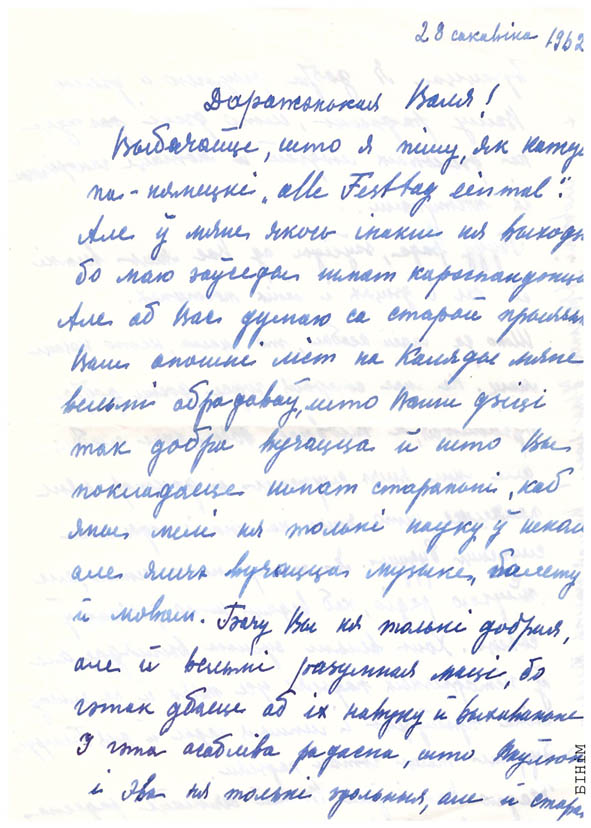 28 сакавіка 1962
Даражэнькая Валя!
Выбачайце, што я пішу, як кажуць
па-нямецкі „alle Festtag einmal“.
Але ў мяне якось інакш ня выходз
бо маю заўсёды шмат карэспандэнцы
Але аб Вас думаю са старой прыязьн
Ваш апошні ліст на Каляды мяне
вельмі абрадаваў, што Вашы дзеці
так добра вучацца й што Вы
пакладаеце шмат стараньні, каб
яны мелі ня толькі навуку ў школ
але яшчэ вучацца музыке, балету
й мовам. Бачу Вы ня толькі добрая,
але й вельмі разумная маці, бо
гэтак дбаеце аб іх навуку й выхаваньне
І гэта асабліва радасна, што Паўлюк
і Эва ня толькі здольныя, але й стара
БІНІМ